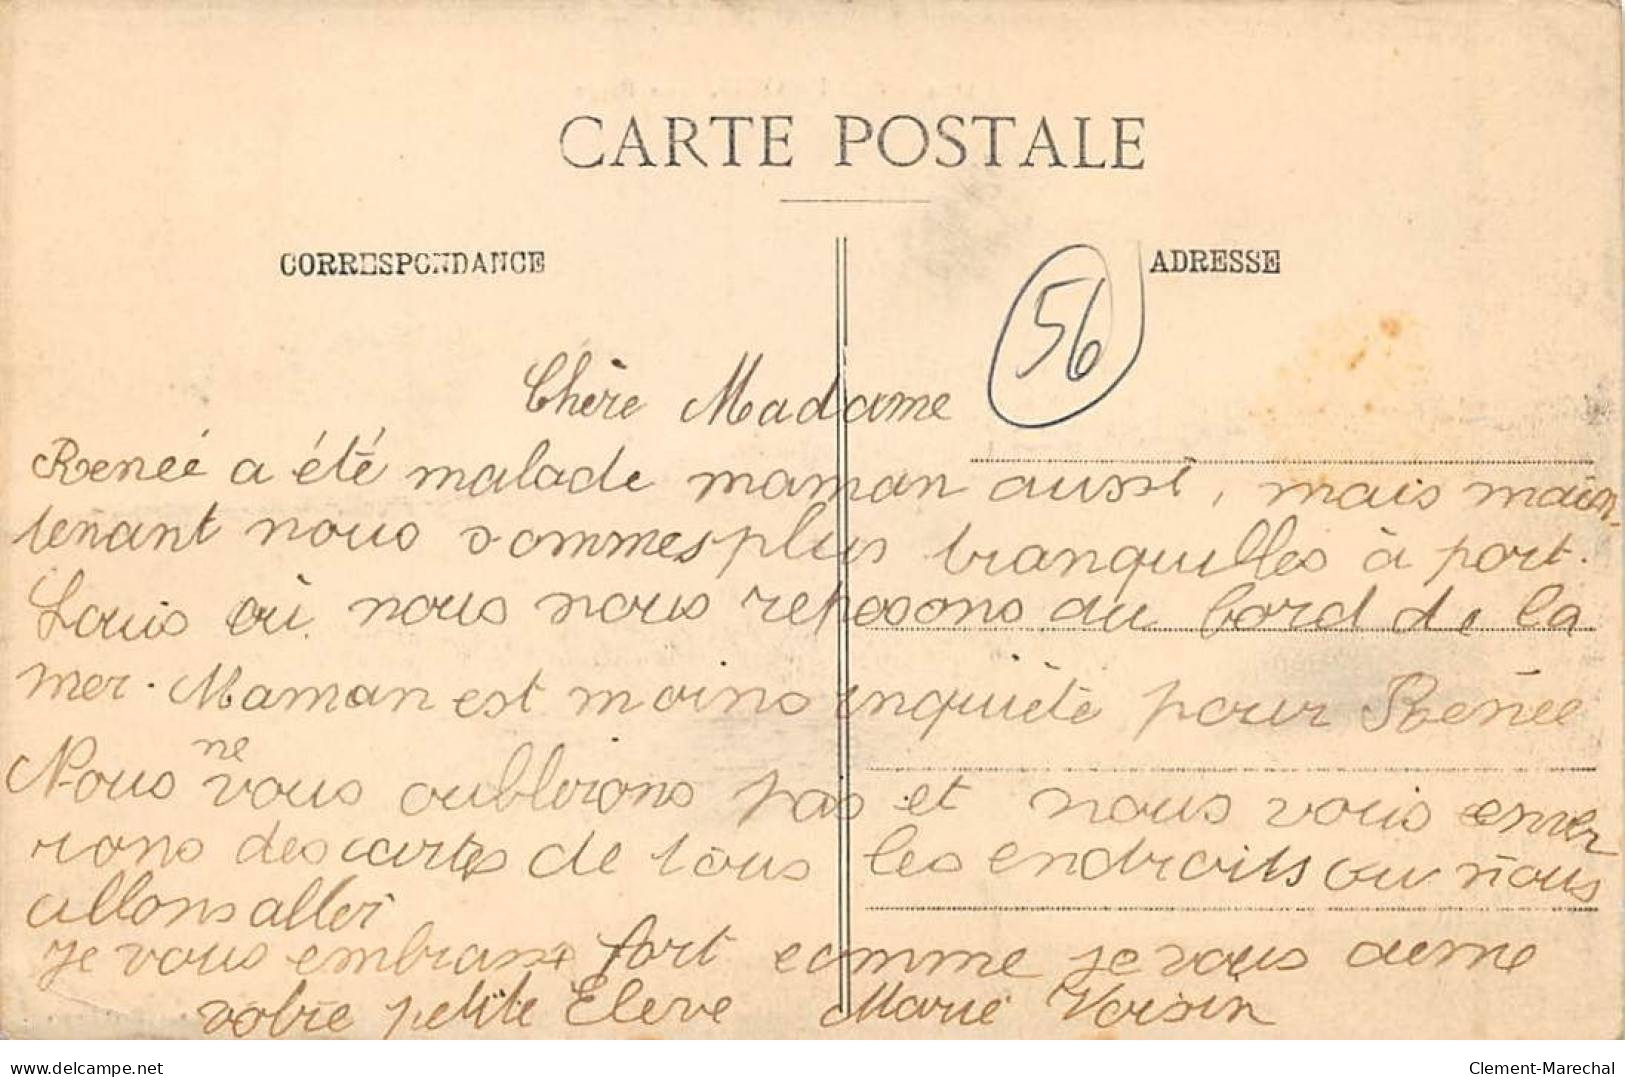 CARTE POSTALE
CORRESPONDANCE
ADRESSE
56
Chère Madame
Renée a été malade maman aussi, mais main-
tenant nous sommes plus tranquilles à port.
Louis où nous nous reposons au bord de la
mer. Maman est moins inquiète pour Renée
Nous ne vous oublierons pas et nous vous enver
rons des cartes de tous les endroits ou nous
allons aller
je vous embrasse fort comme je vous aime
votre petite Elève Marie Voisin
delcampe.net
Clement-Marechal